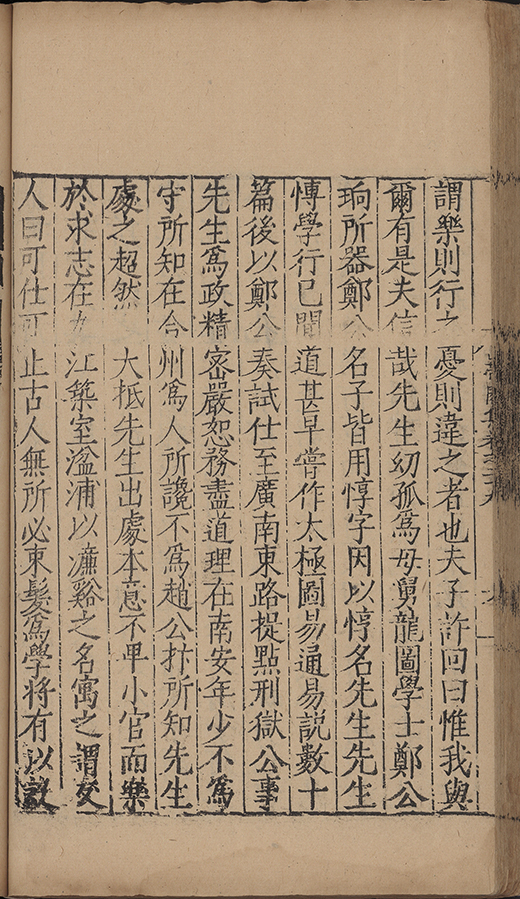 謂樂則行之憂則違之者也夫子許回曰惟我與
爾有是夫信哉先生幼孤爲母舅龍圖學士鄭公
珦所器鄭公名子皆用惇字因以惇名先生先生
博學行已聞道甚早嘗作太極圖易通易説數十
篇後以鄭公奏試仕至廣南東路提點刑獄公事
先生爲政精密嚴恕務盡道理在南安年少不爲
守所知在合州爲人所讒不爲趙公抃所知先生
處之超然大抵先生出處本意不卑小官而樂
於求志在九江築室湓浦以濂谿之名寓之謂友
人曰可仕可止古人無所必束髮爲學將有以設